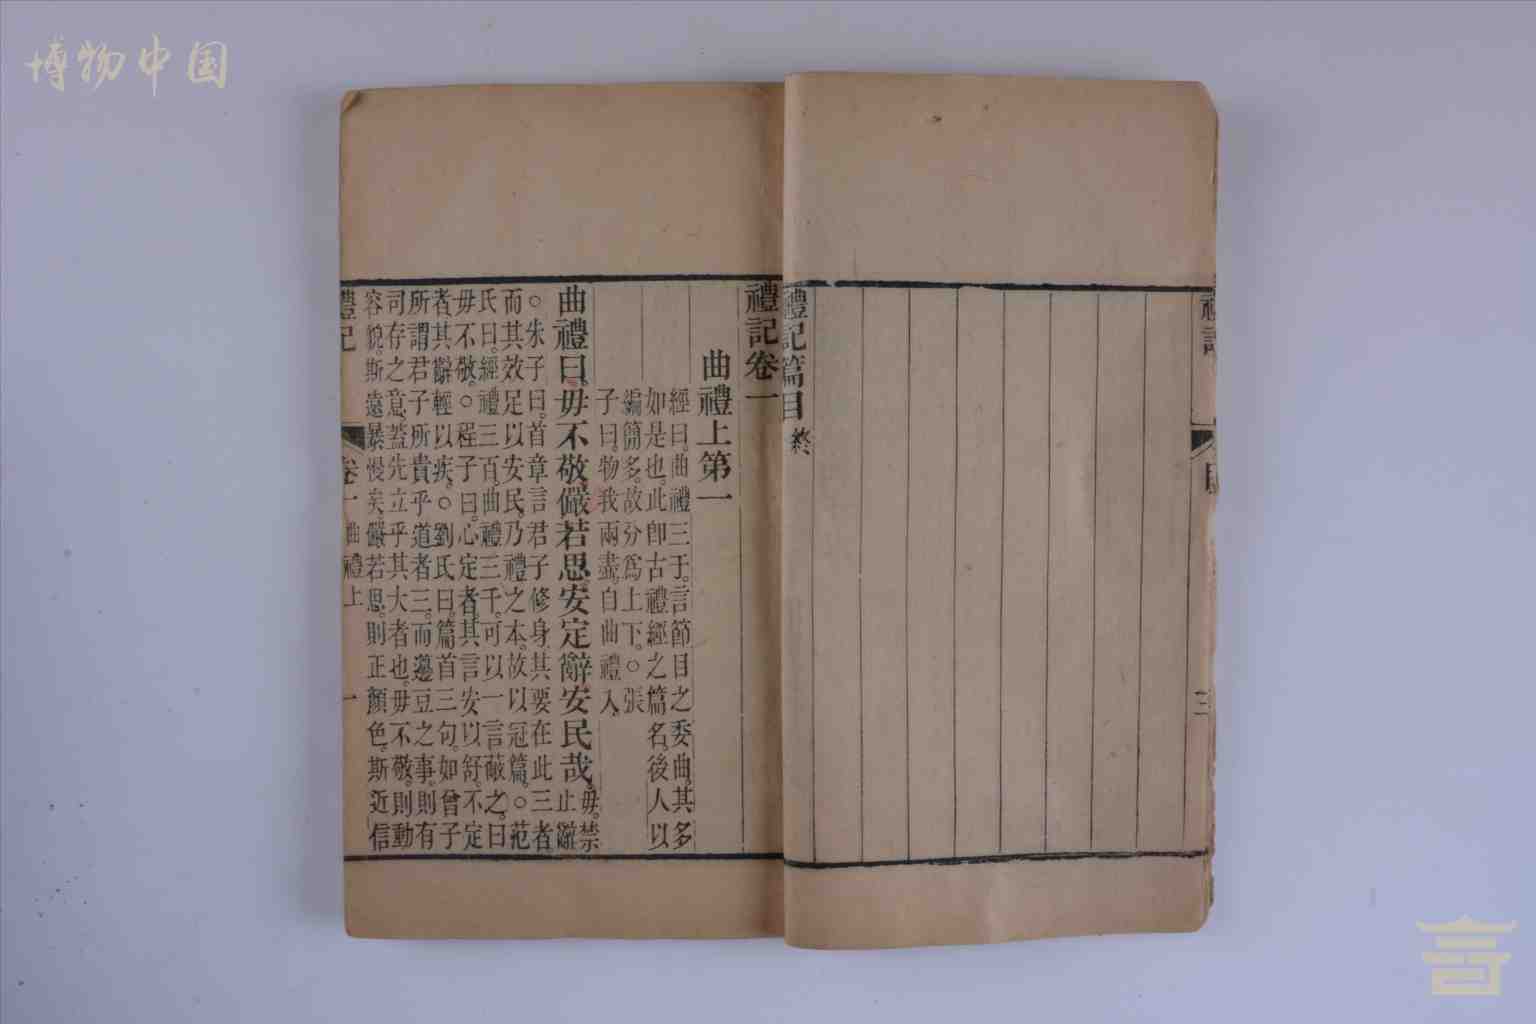 博物中国
禮記 目 三
禮記篇目終
禮記卷一
曲禮上第一
經曰。曲禮三千。言節目之委曲。其多
如是也。此卽古禮經之篇名。後人以
編簡多。故分爲上下。○張
子曰。物我兩盡。自曲禮入。
曲禮曰。毋不敬。儼若思。安定辭。安民哉。毋。禁止辭
○朱子曰。首章言君子修身。其要在此三者。
而其效足以安民。乃禮之本。故以冠篇。○范
氏曰。經禮三百。曲禮三千。可以一言蔽之。曰
毋不敬。○程子曰。心定者。其言安以舒。不定
者。其辭輕以疾。○劉氏曰。篇首三句。如曾子
所謂君子所貴乎道者三。而籩豆之事。則有
司存之意。蓋先立乎其大者也。毋不敬。則動
容貌。斯遠暴慢矣。儼若思。則正顏色。斯近信
禮記 卷一 曲禮上 一